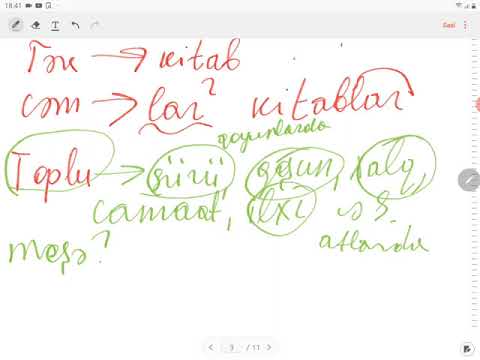 18.41
Tək → kitab
cəm → lar² kitablar
qoyunlarda
Toplu → sürü, qoşun, xalq,
camaat, ilxı və s.
atlarda
meşə?
3 / 11